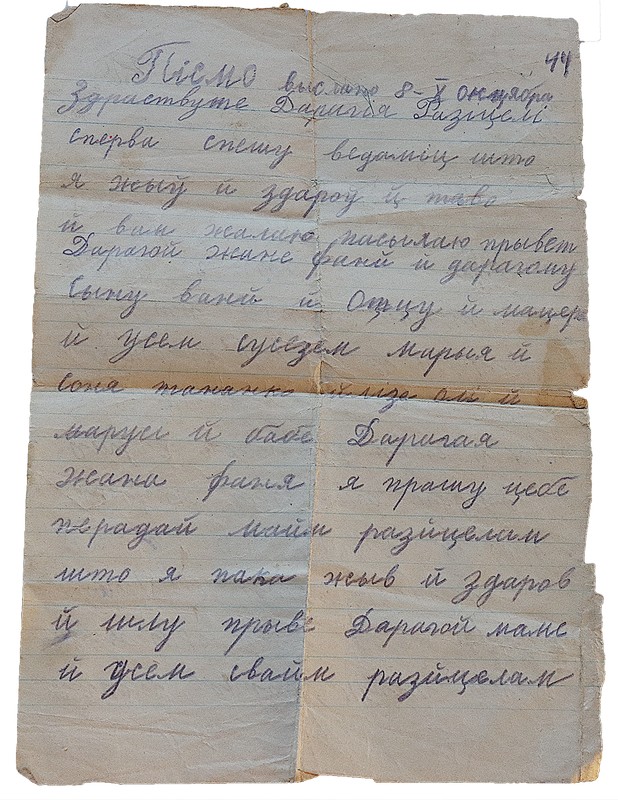 44
Пісмо выслано 8-X октября
Здраствуте Дарагіа Разіцелі
сперва спешу ведаміц што
я жыў й здароў й таво
й вам жалаю пасылаю прывет
Дарагой жане фанй й дарагому
сыну ванй й Отцу й мацеры
й усем суседем марыя й
соня й лізе олі й
марусі й бабе Дарагая
жана фаня я прашу цебе
перадай майм разйцелам
што я пака жыв й здаров
й шлу прыве Дарагой маме
й усем свайм разйцелам